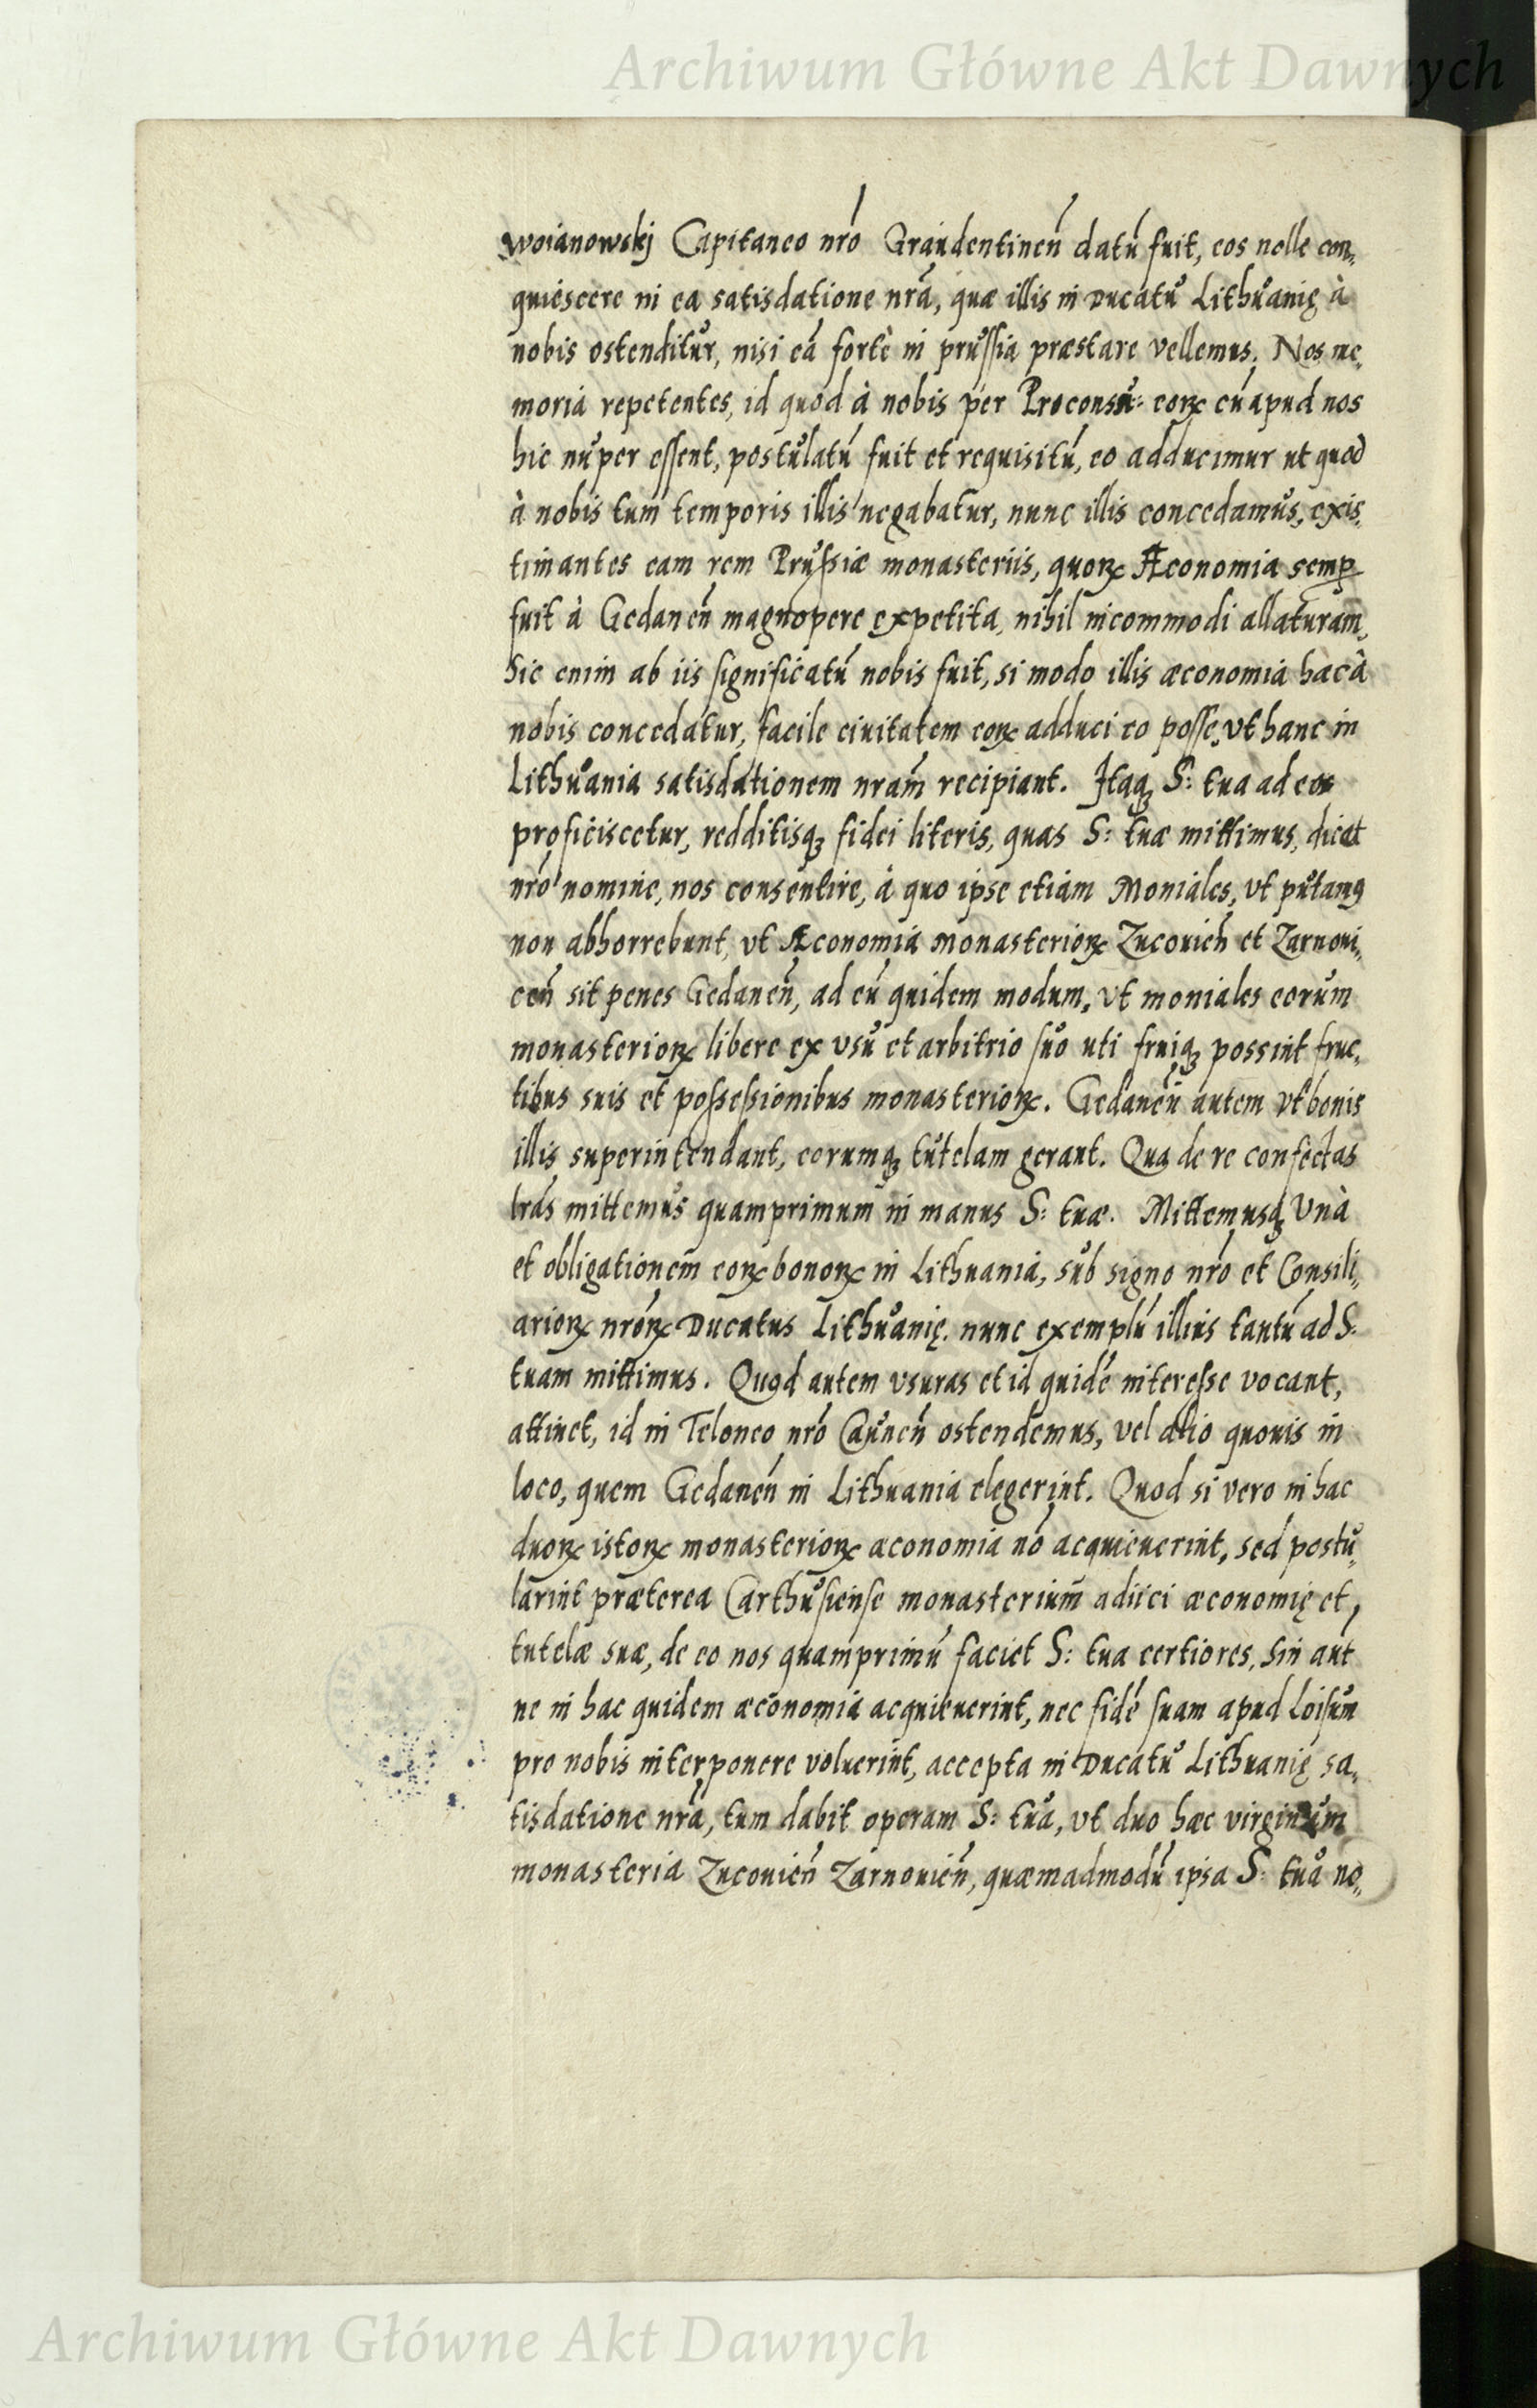 Archiwum Główne Akt Dawnych
Woianowskj Capitaneo nr̃o Graudentineñ datũ fuit, eos nolle con,,
quiescere in ea satisdatione nr̃a, quæ illis in Ducatu Lithuanię à
nobis ostenditur, nisi eã fortè in prussia præstare vellemus. Nos me,,
moria repetentes, id quod à nobis per Proconsu: eorꝝ cũ apud nos
hic nuper essent, postulatũ fuit et requisitũ, eo adducimur ut quod
à nobis tum temporis illis negabatur, nunc illis concedamus, exis,,
timantes eam rem Prussiæ monasteriis, quorꝝ Æconomia semꝑ
fuit à Gedaneñ magnopere expetita, nihil incommodi allaturam,
Sic enim ab iis significatũ nobis fuit, si modo illis æconomia hæc à
nobis concedatur, facile ciuitatem eorꝝ adduci eo posse, vt hanc in
Lithuania satisdationem nr̃am recipiant. Itaqꝫ S: tua ad eos
proficiscetur, redditisqꝫ fidei literis, quas S: tuæ mittimus, dicat
nr̃o nomine, nos consentire, à quo ipse etiam Moniales, vt putamꝰ
non abhorrebunt, vt Æconomia monasteriorꝝ Zucouieñ et Zarnoui,,
ceñ sit penes Gedaneñ, ad eũ quidem modum, vt moniales eorum
monasteriorꝝ libere ex vsu et arbitrio suo uti fruiqꝫ possint fruc,,
tibus suis et possessionibus monasteriorꝝ. Gedaneñ autem vt bonis
illis superintendant, eorumqꝫ tutelam gerant. Qua de re confectas
lr̃as mittemus quamprimum in manus S: tuæ. Mittemusqꝫ Vnà
et obligationem eorꝝ bonorꝝ in Lithuania, sub signo nr̃o et Consili,,
ariorꝝ nr̃orꝝ Ducatus Lithuanię. nunc exemplũ illius tantũ ad S:
tuam mittimus. Quod autem vsuras et id quidẽ interesse vocant,
attinet, id in Teloneo nr̃o Cauneñ ostendemus, vel alio quouis in
loco, quem Gedaneñ in Lithuania elegerint. Quod si vero in hac
duorꝝ istorꝝ monasteriorꝝ æconomia nõ acquieuerint, sed postu,,
larint præterea Carthusiense monasterium adiici æconomię et
tutelæ suæ, de eo nos quamprimũ faciet S: tua certiores, Sin aut
ne in hac quidem æconomia acquieuerint, nec fidẽ suam apud Loisum
pro nobis interponere voluerint, accepta in Ducatu Lithuanię sa,,
tisdatione nr̃a, tum dabit operam S: tua, vt duo hæc virginum
monasteria Zucouieñ Zarnouieñ, quæmadmodũ ipsa S: tua no,,
Archiwum Główne Akt Dawnych